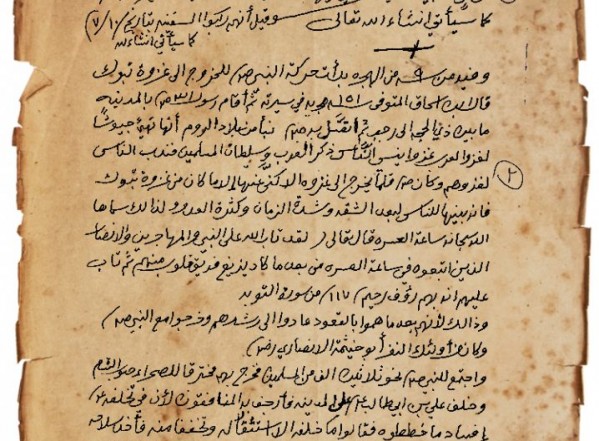 كما سيأتي انشاء الله تعالى وقيل أنهم ركبوا السفينه بتاريخ ١٠/٧
كما سيأتي انشاء الله
وفيه من سنة ٩ من الهجره بدأت حركة النبي ص للخروج الى غزوة تبوك
قال ابن اسحاق المتوفى ١٥١ في سيرته ثم أقام رسول الله ص بالمدينه
ما بين ذي الحجه الى رجب ثم نبأ من بلاد الروم أنها تهيء جيوشاً
لغزو العرب ذكر العرب وسلطان المسلمين فندب الناس
لغزوهم وكان ص قلما يخرج الى غزوه الا كنى عنها إلا ما كان من غزوة تبوك
فانه بينها للناس لبعد الشقه وشدة الزمان وكثرة العدو ولذالك سماها
الله سبحانه ساعة العسره فقال تعالى ( لقد تاب الله على النبي والمهاجرين والانصار
الذين اتبعوه في ساعة العسره من بعد ما كاد يزيغ قلوب فريق منهم ثم تاب
عليهم انه بهم رؤف رحيم / ١١٧ / من سورة التوبه
وذالك لأنهم بعد ما هموا بالقعود عادوا الى رشدهم وخرجوا مع النبي ص
وكان من أولئك النفر أبو خيثمة الانصاري رض
واجتمع للنبي ص نحو ثلاثين الف من المسلمين فخرج بهم مخترقا للصحراء
وخلف علي بن ابي طالب على المدينه فأرجف به المنافقون لأن في تخلفه
افساد ما خططوه فقالوا ما خلفه الا استثقالا له وتخففا منه فأخذ سلاحه
٢